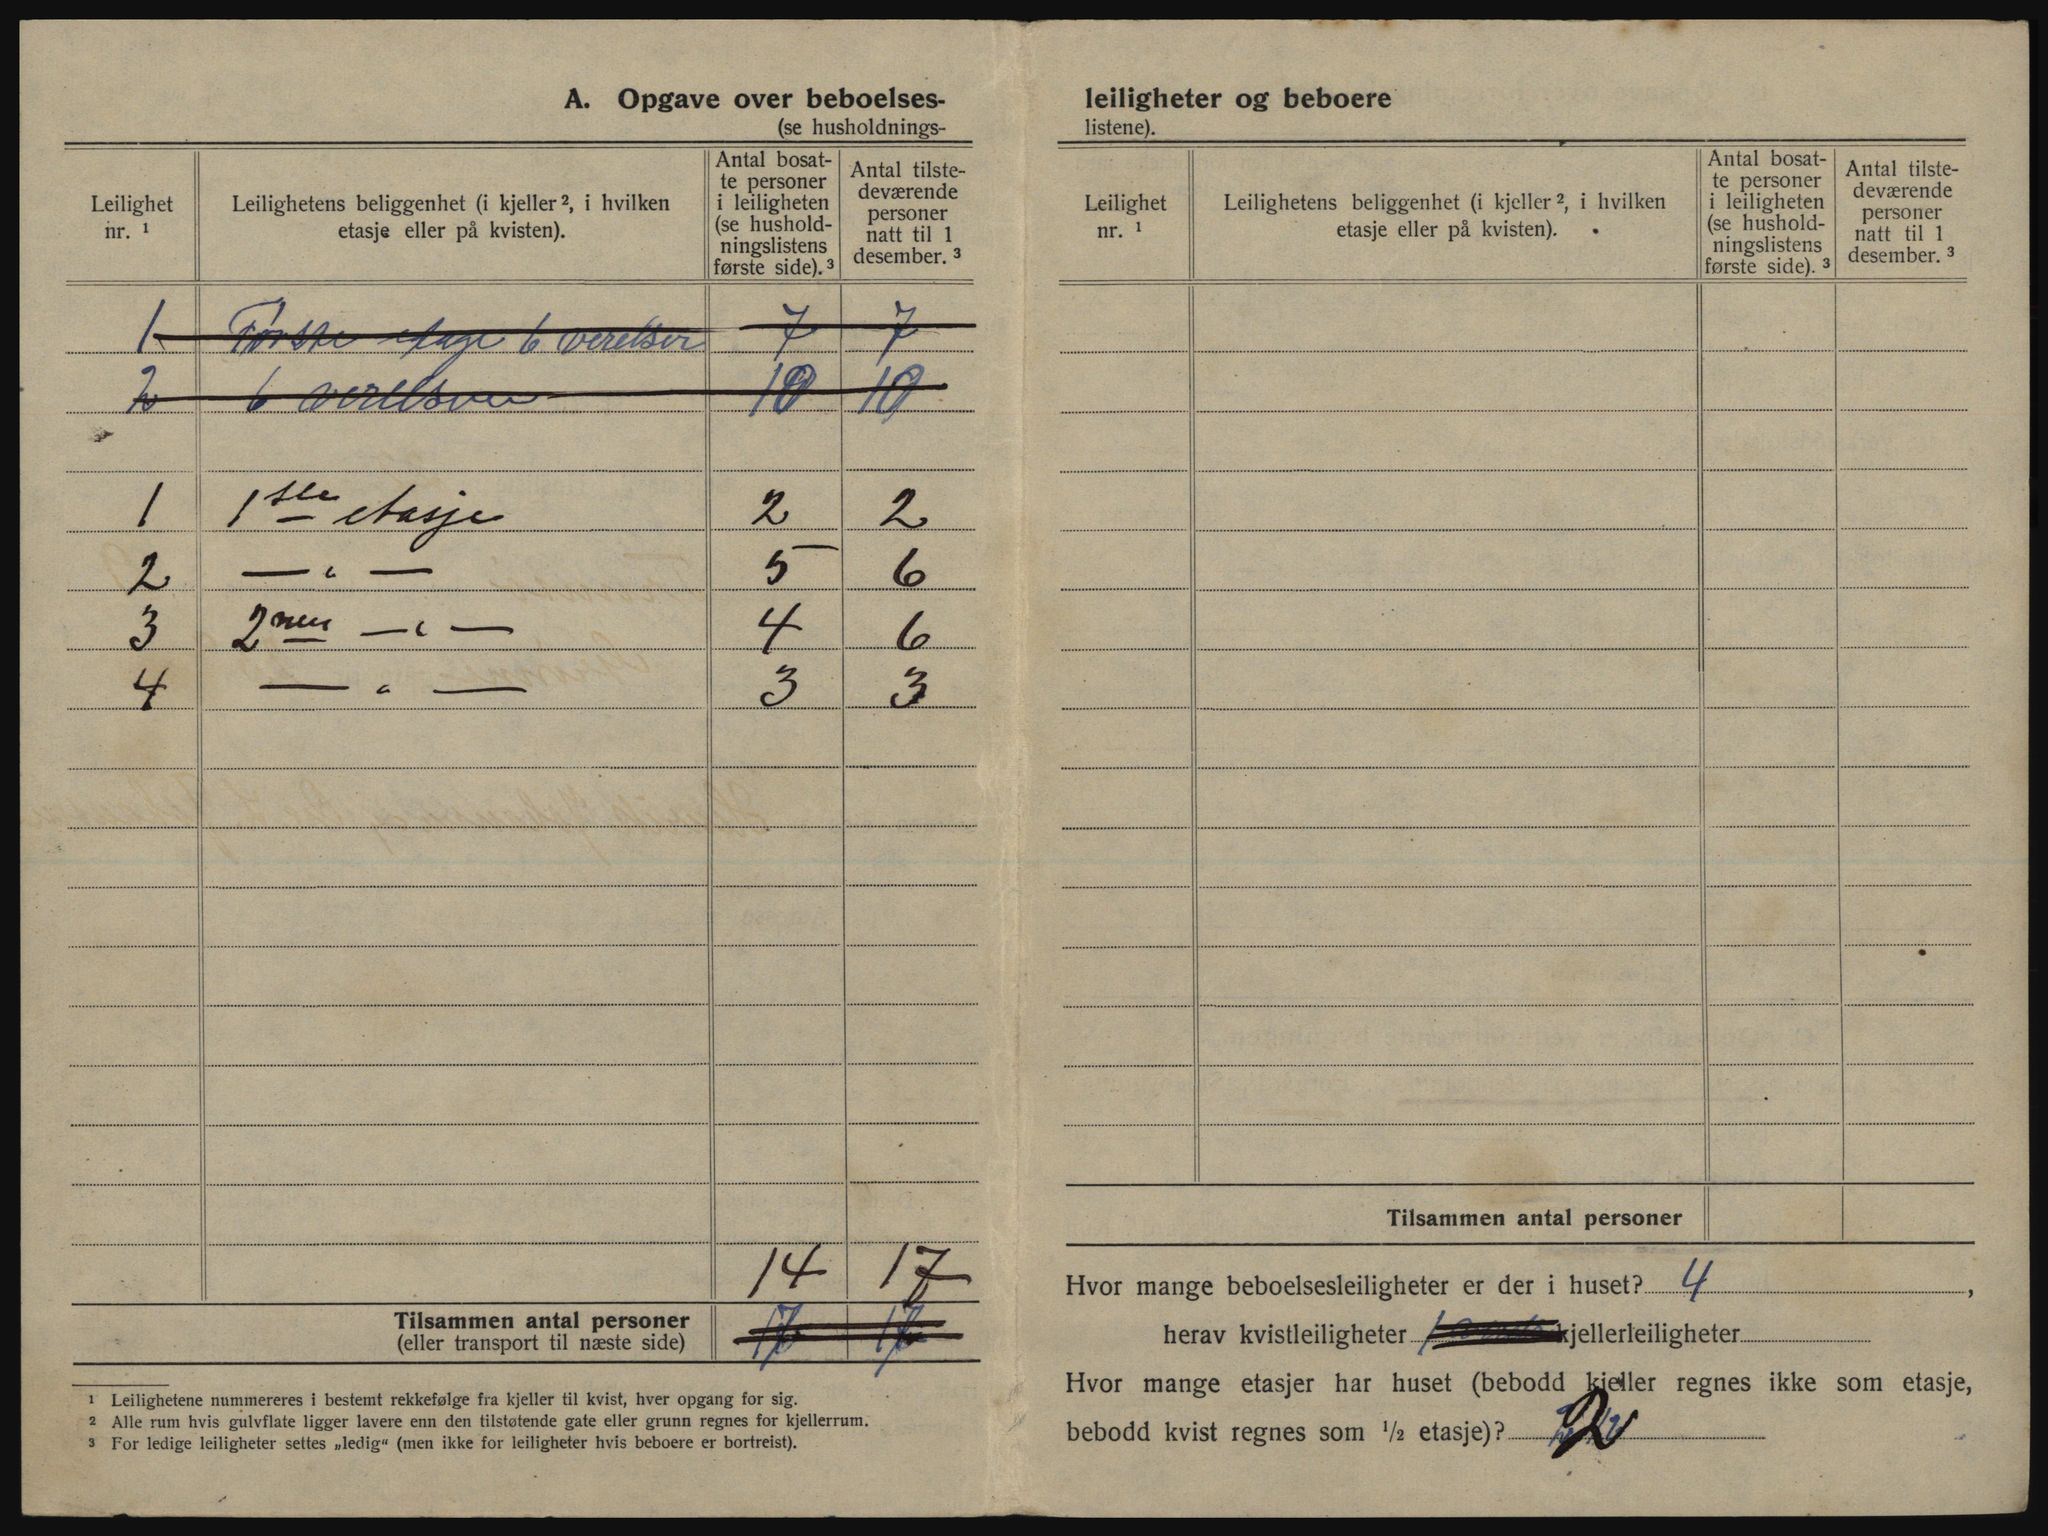 A. Opgave over beboelses-
(se husholdnings-
Leilighet
nr. ¹
Leilighetens beliggenhet (i kjeller ², i hvilken
etasje eller på kvisten).
Antal bosat-
te personer
i leiligheten
(se hushold-
ningslistens
første side). ³
Antal tilste-
deværende
personer
natt til 1
desember. ³
1 Første etage 6 verelser 7 7
2 6 verelser 10 10
1 1ste etasje 2 2
2 — " — 5 6
3 2nen — " — 4 6
4 — " — 3 3
14 17
Tilsammen antal personer
(eller transport til næste side)
17 17
¹ Leilighetene nummereres i bestemt rekkefølge fra kjeller til kvist, hver opgang for sig.
² Alle rum hvis gulvflate ligger lavere enn den tilstøtende gate eller grunn regnes for kjellerrum.
³ For ledige leiligheter settes „ledig“ (men ikke for leiligheter hvis beboere er bortreist).
leiligheter og beboere
listene).
Leilighet
nr. ¹
Leilighetens beliggenhet (i kjeller ², i hvilken
etasje eller på kvisten).
Antal bosat-
te personer
i leiligheten
(se hushold-
ningslistens
første side). ³
Antal tilste-
deværende
personer
natt til 1
desember. ³
Tilsammen antal personer
Hvor mange beboelsesleiligheter er der i huset? 4,
herav kvistleiligheter kjellerleiligheter
Hvor mange etasjer har huset (bebodd kjeller regnes ikke som etasje,
bebodd kvist regnes som 1/2 etasje)? 2